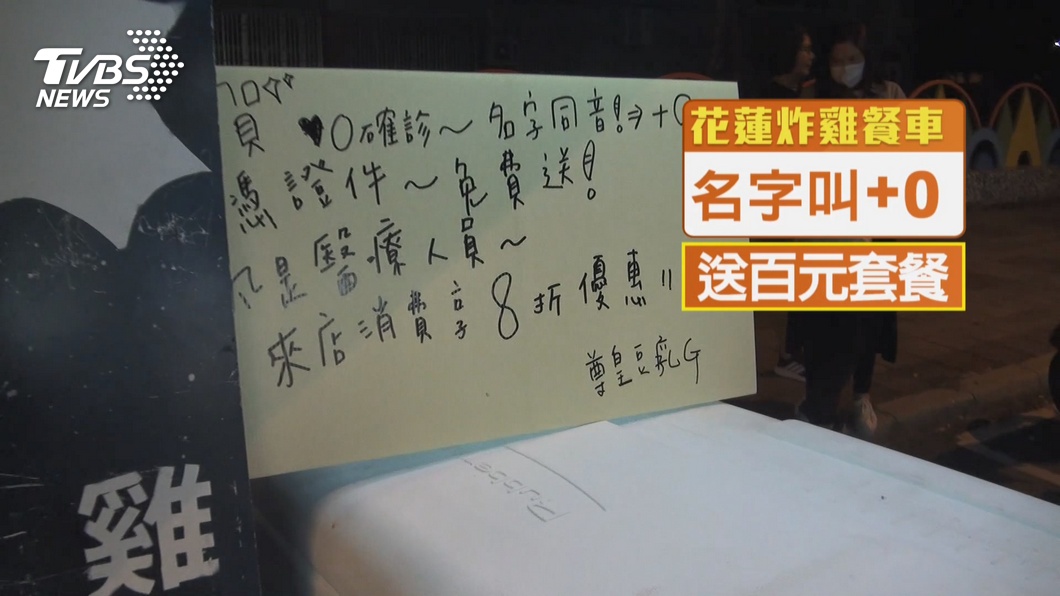 TVBS
NEWS
花蓮炸雞餐車
名字叫+0
送百元套餐
員 ♥0確診~名字同音!⇒+0
憑證件~免費送!
凡是醫療人員~
來店消費享8折優惠!!
尊皇豆乳G
雞
Rubber